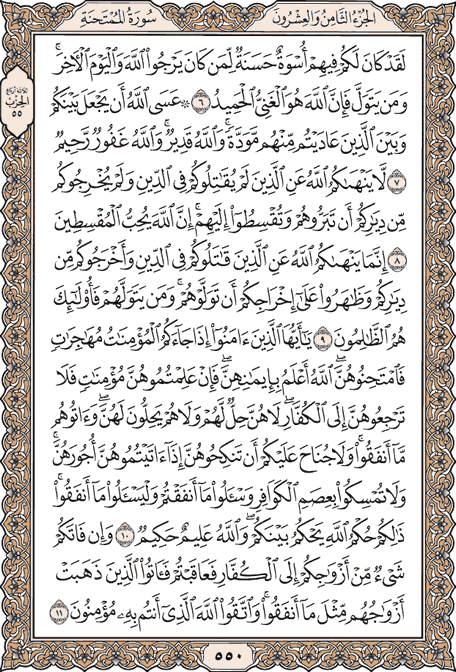 الجزء الثامن والعشرون
سورة الممتحنة
لَقَدْ كَانَ لَكُمْ فِيهِمْ أُسْوَةٌ حَسَنَةٌ لِّمَن كَانَ يَرْجُوا۟ ٱللَّهَ وَٱلْيَوْمَ ٱلْءَاخِرَ ۚ
وَمَن يَتَوَلَّ فَإِنَّ ٱللَّهَ هُوَ ٱلْغَنِىُّ ٱلْحَمِيدُ ٦ ۞ عَسَى ٱللَّهُ أَن يَجْعَلَ بَيْنَكُمْ
ثلاثة أرباع الحزب ٥٥
وَبَيْنَ ٱلَّذِينَ عَادَيْتُم مِّنْهُم مَّوَدَّةً ۚ وَٱللَّهُ قَدِيرٌ ۚ وَٱللَّهُ غَفُورٌ رَّحِيمٌ
٧ لَّا يَنْهَىٰكُمُ ٱللَّهُ عَنِ ٱلَّذِينَ لَمْ يُقَـٰتِلُوكُمْ فِى ٱلدِّينِ وَلَمْ يُخْرِجُوكُم
مِّن دِيَـٰرِكُمْ أَن تَبَرُّوهُمْ وَتُقْسِطُوٓا۟ إِلَيْهِمْ ۚ إِنَّ ٱللَّهَ يُحِبُّ ٱلْمُقْسِطِينَ
٨ إِنَّمَا يَنْهَىٰكُمُ ٱللَّهُ عَنِ ٱلَّذِينَ قَـٰتَلُوكُمْ فِى ٱلدِّينِ وَأَخْرَجُوكُم مِّن
دِيَـٰرِكُمْ وَظَـٰهَرُوا۟ عَلَىٰٓ إِخْرَاجِكُمْ أَن تَوَلَّوْهُمْ ۚ وَمَن يَتَوَلَّهُمْ فَأُو۟لَـٰٓئِكَ
هُمُ ٱلظَّـٰلِمُونَ ٩ يَـٰٓأَيُّهَا ٱلَّذِينَ ءَامَنُوٓا۟ إِذَا جَآءَكُمُ ٱلْمُؤْمِنَـٰتُ مُهَـٰجِرَٰتٍ
فَٱمْتَحِنُوهُنَّ ۖ ٱللَّهُ أَعْلَمُ بِإِيمَـٰنِهِنَّ ۖ فَإِنْ عَلِمْتُمُوهُنَّ مُؤْمِنَـٰتٍ فَلَا
تَرْجِعُوهُنَّ إِلَى ٱلْكُفَّارِ ۖ لَا هُنَّ حِلٌّ لَّهُمْ وَلَا هُمْ يَحِلُّونَ لَهُنَّ ۖ وَءَاتُوهُم
مَّآ أَنفَقُوا۟ ۚ وَلَا جُنَاحَ عَلَيْكُمْ أَن تَنكِحُوهُنَّ إِذَآ ءَاتَيْتُمُوهُنَّ أُجُورَهُنَّ ۚ
وَلَا تُمْسِكُوا۟ بِعِصَمِ ٱلْكَوَافِرِ وَسْـَٔلُوا۟ مَآ أَنفَقْتُمْ وَلْيَسْـَٔلُوا۟ مَآ أَنفَقُوا۟ ۚ
ذَٰلِكُمْ حُكْمُ ٱللَّهِ ۖ يَحْكُمُ بَيْنَكُمْ ۚ وَٱللَّهُ عَلِيمٌ حَكِيمٌ ١٠ وَإِن فَاتَكُمْ
شَىْءٌ مِّنْ أَزْوَٰجِكُمْ إِلَى ٱلْكُفَّارِ فَعَاقَبْتُمْ فَـَٔاتُوا۟ ٱلَّذِينَ ذَهَبَتْ
أَزْوَٰجُهُم مِّثْلَ مَآ أَنفَقُوا۟ ۚ وَٱتَّقُوا۟ ٱللَّهَ ٱلَّذِىٓ أَنتُم بِهِۦ مُؤْمِنُونَ ١١
٥٥٠